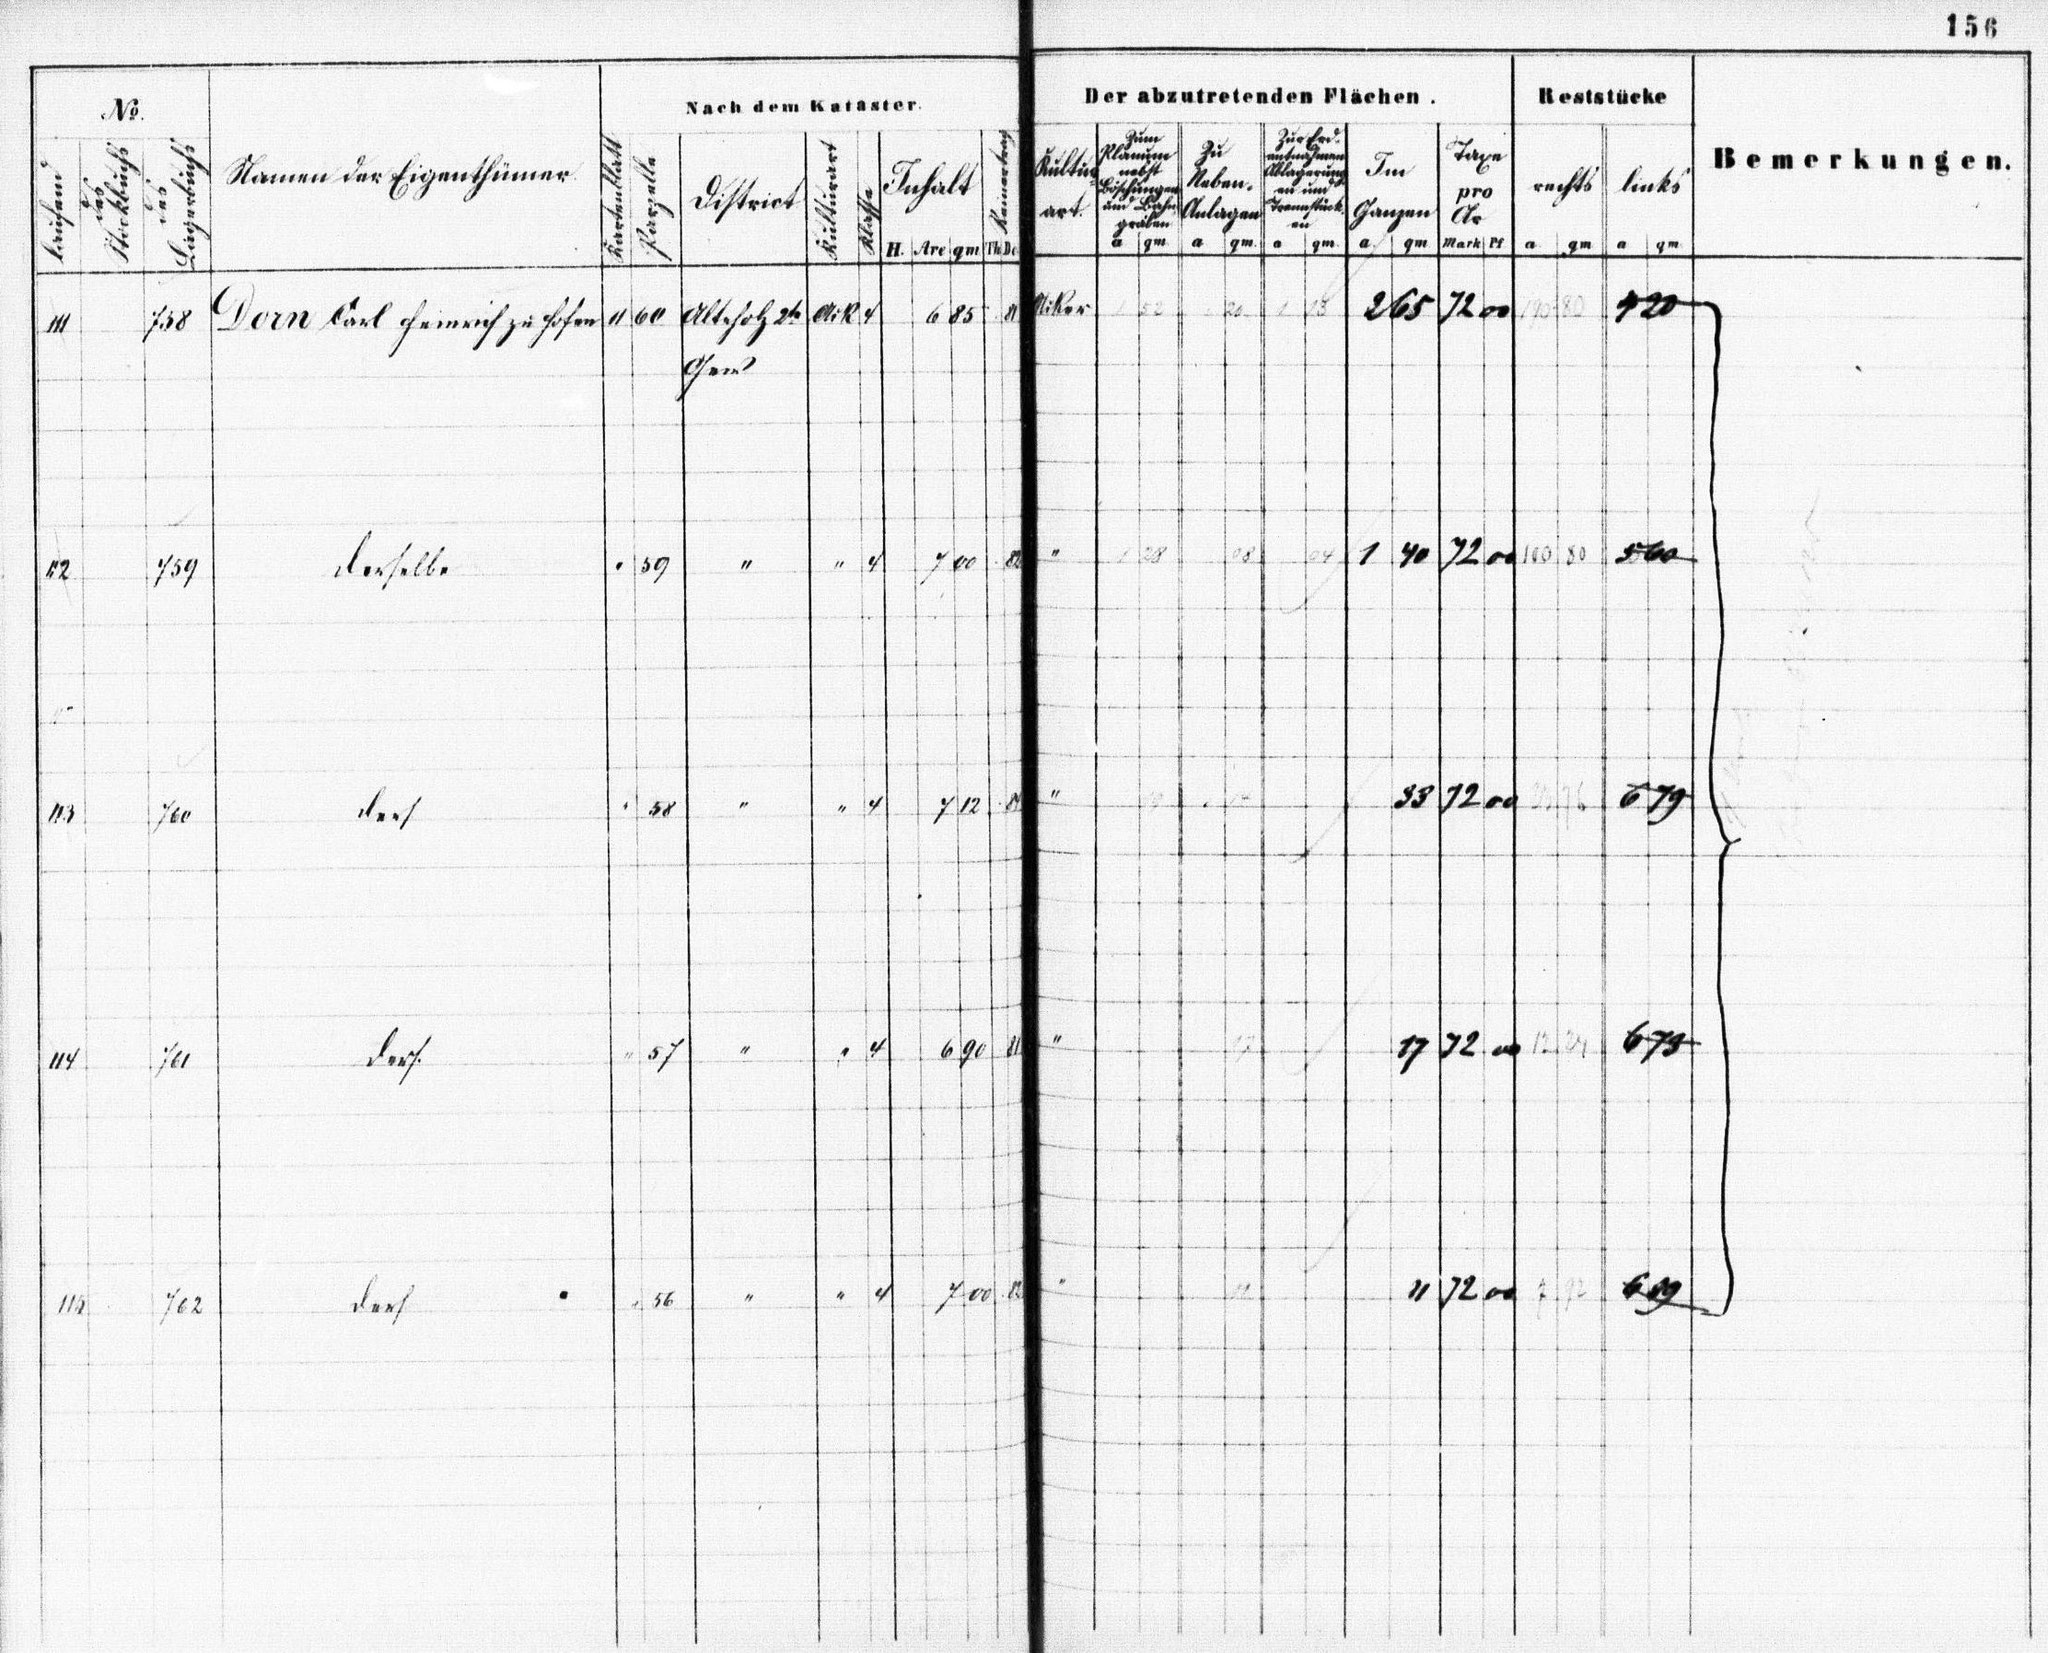 156
No.
Namen der Eigenthümer.
Nach dem Kataster.
Der abzutretenden Flächen.
Reststücke
Bemerkungen.
laufend
des Stockbuchs
des Lagerbuchs
Kartenblatt
Parzelle
District
Kulturart
Klasse
Inhalt
H. Are qm
Reinertrag
Th. De
Kultur-
art.
Zum
Planum
nebst
Böschungen
und Bahn
gräben
a qm
Zu
Neben-
Anlagen
a qm.
Zur Erd-
entnahmen
Ablagerung
en und
Trennstück
en
a qm
Im
Ganzen
a. qm
Taxe
pro
Ar
Mark Pf
rechts
a qm
links
a qm
111 758 Dorn Carl Heinrich zu Hofen 11 60 Alteholz 2te Ack 4 6 85 81 Acker 1 52 20 1 13 2 65 72 00 190 80 4 20
Gew
112 759 Derselbe " 59 " " 4 7 00 82 " 1 28 08 04 1 40 72 00 100 80 5 60
113 760 Ders " 58 " " 4 7 12 " 33 72 00 23 76 6 79
114 761 Ders. " 57 " " 4 6 90 81 " 17 17 72 00 12 24 6 73
115 762 Ders " 56 " " 4 7 00 82 " 11 11 72 00 7 92 6 89